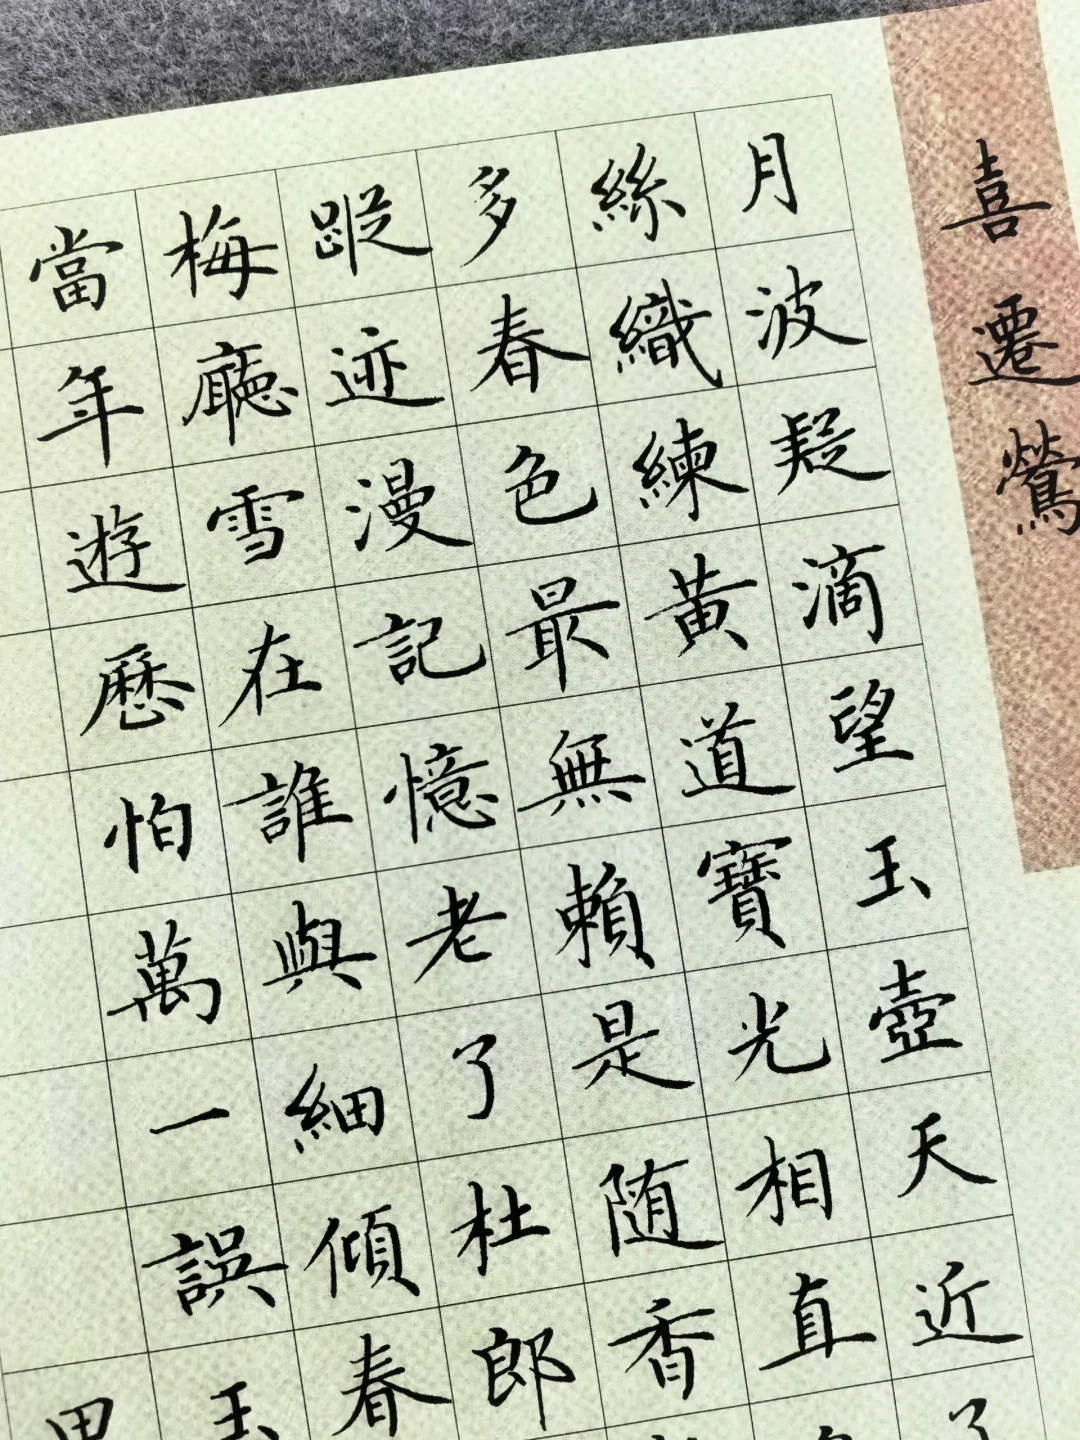 喜遷鶯
月波疑滴望玉壺天近了
絲織練黃道寶光相直
多春色最無賴是随香
蹤迹漫記憶老了杜郎
梅廳雪在誰與細傾春
當年遊歷怕萬一誤玉